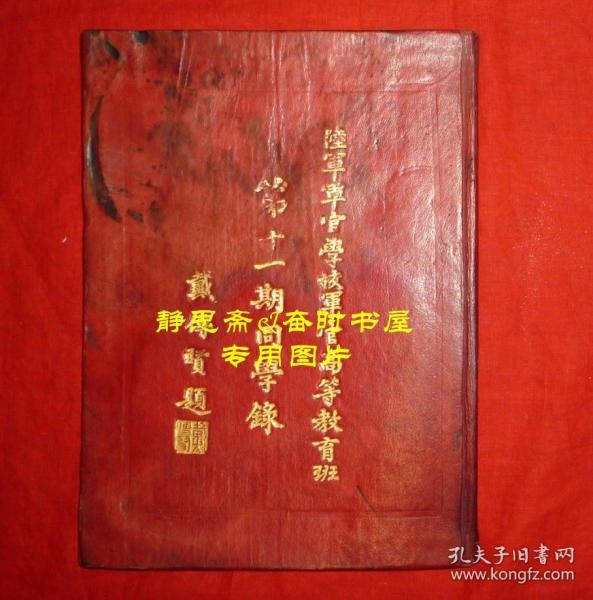 陸軍軍官學校軍官高等教育班
第十一期同學錄
戴傳賢題
静思斋&奋时书屋
专用图片
孔夫子旧书网
www.kongfz.com